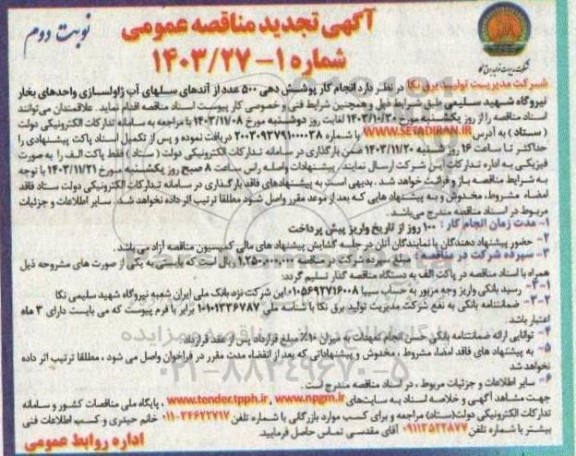 آگهی تجدید مناقصه عمومی
نوبت دوم
شماره ۱-۱۴۰۳/۲۷
شرکت مدیریت تولید برق نکا
شرکت مدیریت تولید برق نکا در نظر دارد انجام کار پوشش دهی ۵۰۰ عدد از آندهای سلهای آب ژاولسازی واحدهای بخار
نیروگاه شهید سلیمی طبق شرایط ذیل و همچنین شرایط فنی و خصوصی کار پیوست اسناد مناقصه اقدام نماید. علاقمندان می‌توانند
اسناد مناقصه را از روز یکشنبه مورخ ۱۴۰۳/۱۰/۳۰ لغایت روز دوشنبه مورخ ۱۴۰۳/۱۱/۰۸ با مراجعه به سامانه تدارکات الکترونیکی دولت
(ستاد) به آدرس WWW.SETADIRAN.IR با شماره ۲۰۰۳۰۹۲۷۹۱۰۰۰۰۳۸ دریافت نموده و پس از تکمیل اسناد پاکت پیشنهادی را
حداکثر تا ساعت ۱۶ روز شنبه ۱۴۰۳/۱۱/۲۰ ضمن بارگذاری در سامانه تدارکات الکترونیکی دولت (ستاد) فقط پاکت الف را به صورت
فیزیکی به اداره تدارکات این شرکت ارسال نمایند. پیشنهادات واصله راس ساعت ۸ صبح روز یکشنبه مورخ ۱۴۰۳/۱۱/۲۱ با توجه
به شرایط مناقصه باز و قرائت خواهد شد. بدیهی است به پیشنهادهای فاقد بارگذاری در سامانه تدارکات الکترونیکی دولت ستاد فاقد
امضاء، مشروط، مخدوش و به پیشنهاد هایی که بعد از موعد مقرر واصل شود مطلقا ترتیب اثر داده نخواهد شد. سایر اطلاعات و جزئیات
مربوط در اسناد مناقصه مندرج می‌باشد.
۱- مدت زمان انجام کار: ۱۰۰ روز از تاریخ واریز پیش پرداخت
۲- حضور پیشنهاد دهندگان یا نمایندگان آنان در جلسه گشایش پیشنهاد های مالی کمیسیون مناقصه آزاد می باشد.
۳- سپرده شرکت در مناقصه: مبلغ سپرده شرکت در مناقصه ۱.۲۵۰.۰۰۰.۰۰۰ ریال است که بایستی به یکی از صورت های مشروحه ذیل
همراه با اسناد مناقصه در پاکت الف به دستگاه مناقصه گذار تسلیم گردد:
رسید بانکی واریز وجه مزبور به حساب سیبا ۰۱۰۵۶۹۲۷۱۶۰۰۸ این شرکت نزد بانک ملی ایران شعبه نیروگاه شهید سلیمی نکا
ضمانتنامه بانکی به نفع شرکت مدیریت تولید برق نکا با شناسه ملی ۱۰۱۰۱۳۳۶۷۸۷ برابر با فرم پیوست که می بایست دارای ۳ ماه
اعتبار باشد.
۴- توانایی ارائه ضمانتنامه بانکی حسن انجام تعهدات به میزان ۱۰٪ مبلغ قرارداد پس از عقد قرارداد.
۵- به پیشنهاد های فاقد امضا، مشروط، مخدوش و پیشنهاداتی که بعد از انقضاء مدت مقرر در فراخوان واصل می شود، مطلقا ترتیب اثر داده
نخواهد شد
۶- سایر اطلاعات و جزئیات مربوط، در اسناد مناقصه مندرج است.
جهت مشاهده آگهی و خلاصه اسناد به سایت‌های www.tender.tpph.ir , www.npgm.ir، پایگاه ملی مناقصات کشور و سامانه
تدارکات الکترونیکی دولت (ستاد) مراجعه و برای کسب موارد بازرگانی با شماره تلفن ۳۴۶۲۲۷۱۷-۰۱۱ خانم حیدری و کسب اطلاعات فنی
بیشتر با شماره تلفن ۰۹۱۱۳۵۲۲۸۷۷ آقای مقدسی تماس حاصل فرمایید.
اداره روابط عمومی
۰۲۱-۸۸۳۴۹۶۷۰-۵